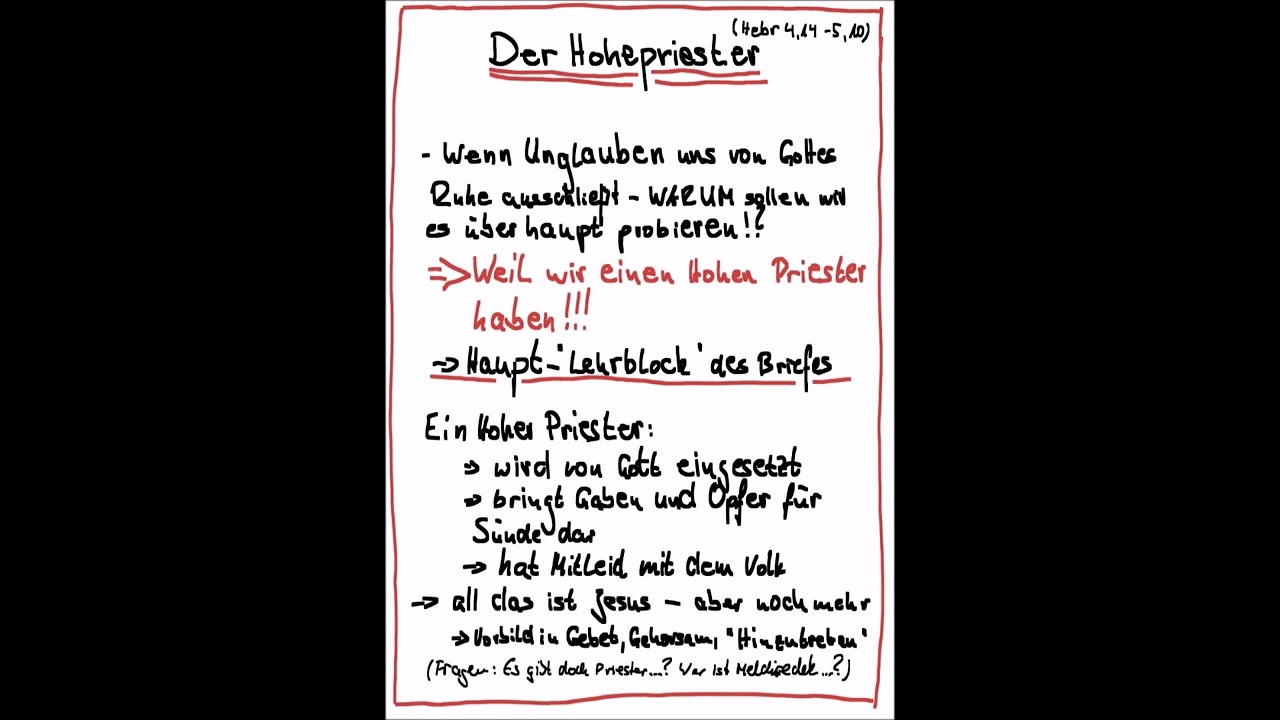 (Hebr 4,14 - 5,10)
Der Hohepriester
- Wenn Unglauben uns von Gottes
Ruhe ausschließt - WARUM sollen wir
es überhaupt probieren!?
=> Weil wir einen Hohen Priester
haben!!!
-> Haupt-"Lehrblock" des Briefes
Ein Hoher Priester:
-> wird von Gott eingesetzt
-> bringt Gaben und Opfer für
Sünde dar
-> hat Mitleid mit dem Volk
-> all das ist Jesus - aber noch mehr
-> Vorbild in Gebet, Gehorsam, "Hinzutreten"
(Fragen: Es gibt doch Priester...? Wer ist Melchisedek...?)